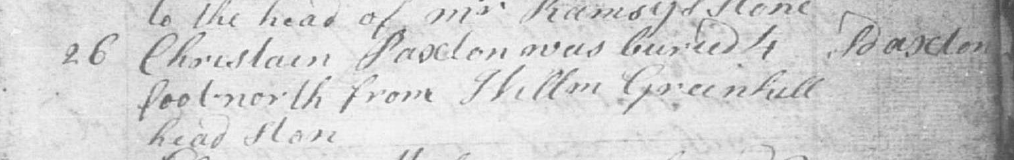 to the head of mr Ramsys stone
26 Christain Paxton was buried 4 Paxton
foot north from Willm Greinhill
head ston